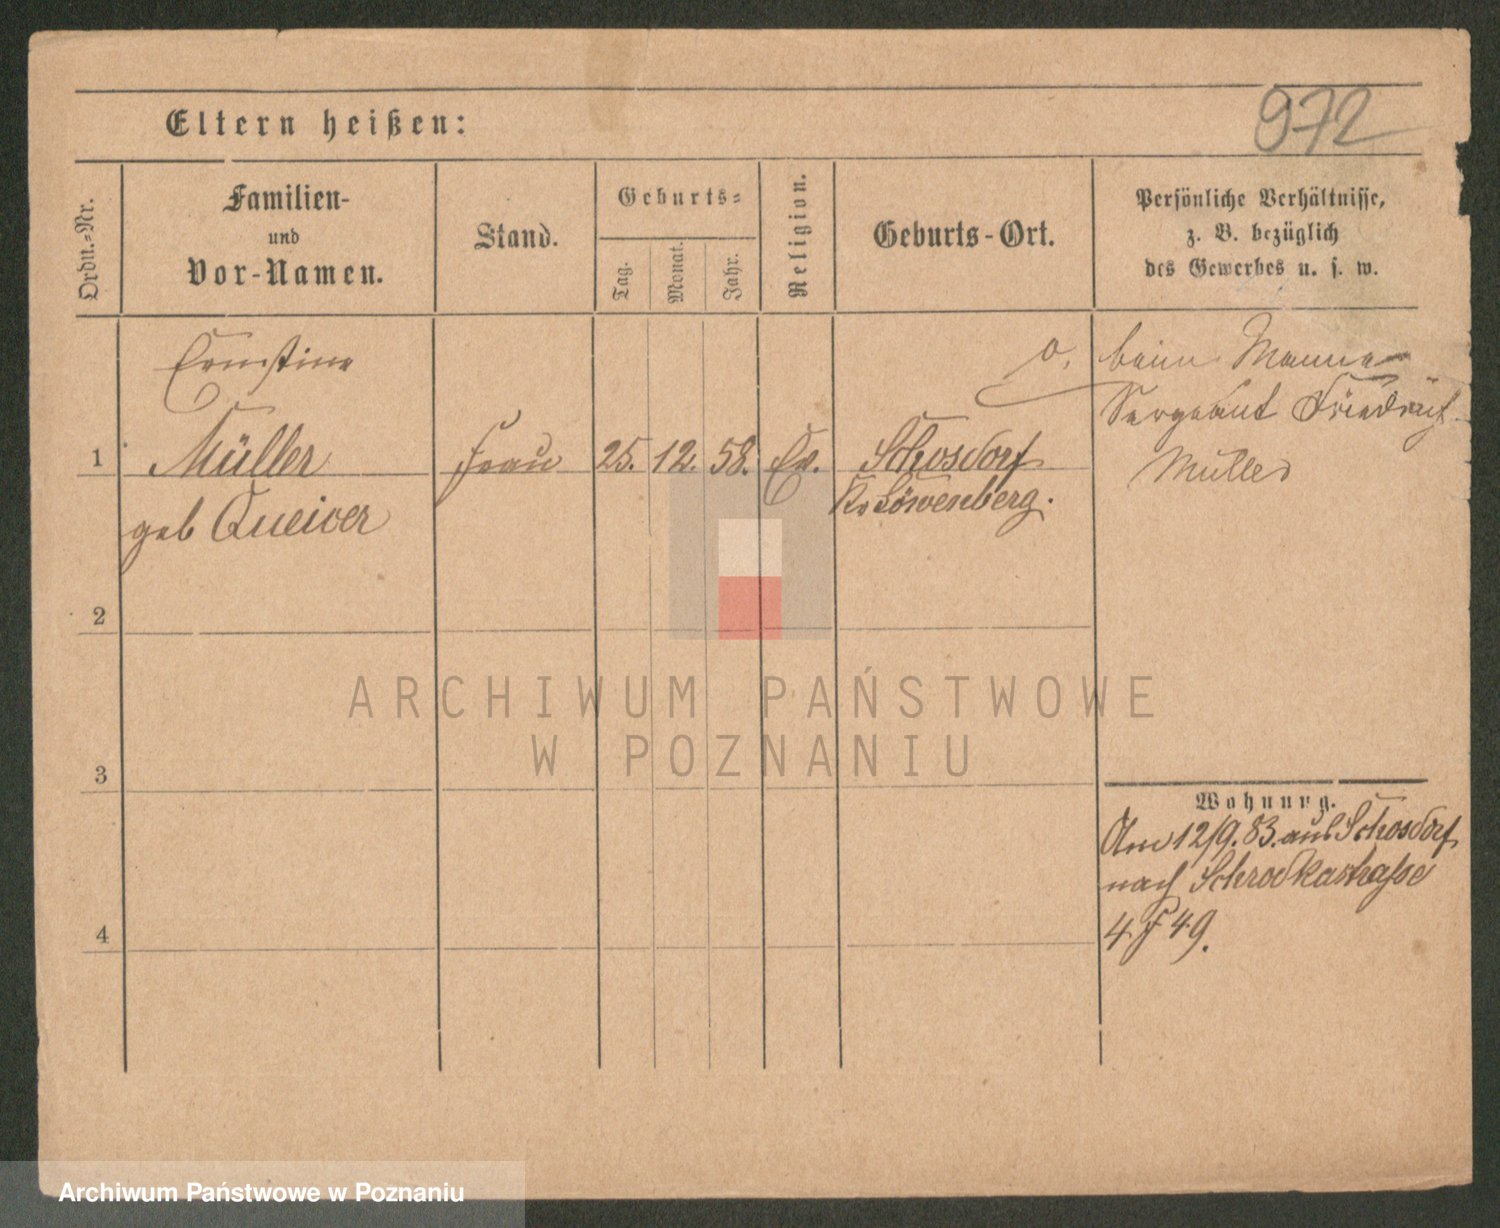 972
Eltern heißen:
Ordn.-Nr.
Familien-
und
Vor-Namen.
Stand.
Geburts-
Tag.
Monat.
Jahr.
Religion.
Geburts-Ort.
Persönliche Verhältnisse,
z. B. bezüglich
des Gewerbes u. s. w.
Ernstine
1 Müller Frau 25. 12. 58. Ev. Schosdorf
geb Kr Löwenberg.
beim Manne
Sergeant Friedrich
Müller
2
3
4
Wohnung.
Am 12/9. 83. aus Schosdorf
nach Schrodkastraße
4 49.
ARCHIWUM PAŃSTWOWE
W POZNANIU
Archiwum Państwowe w Poznaniu